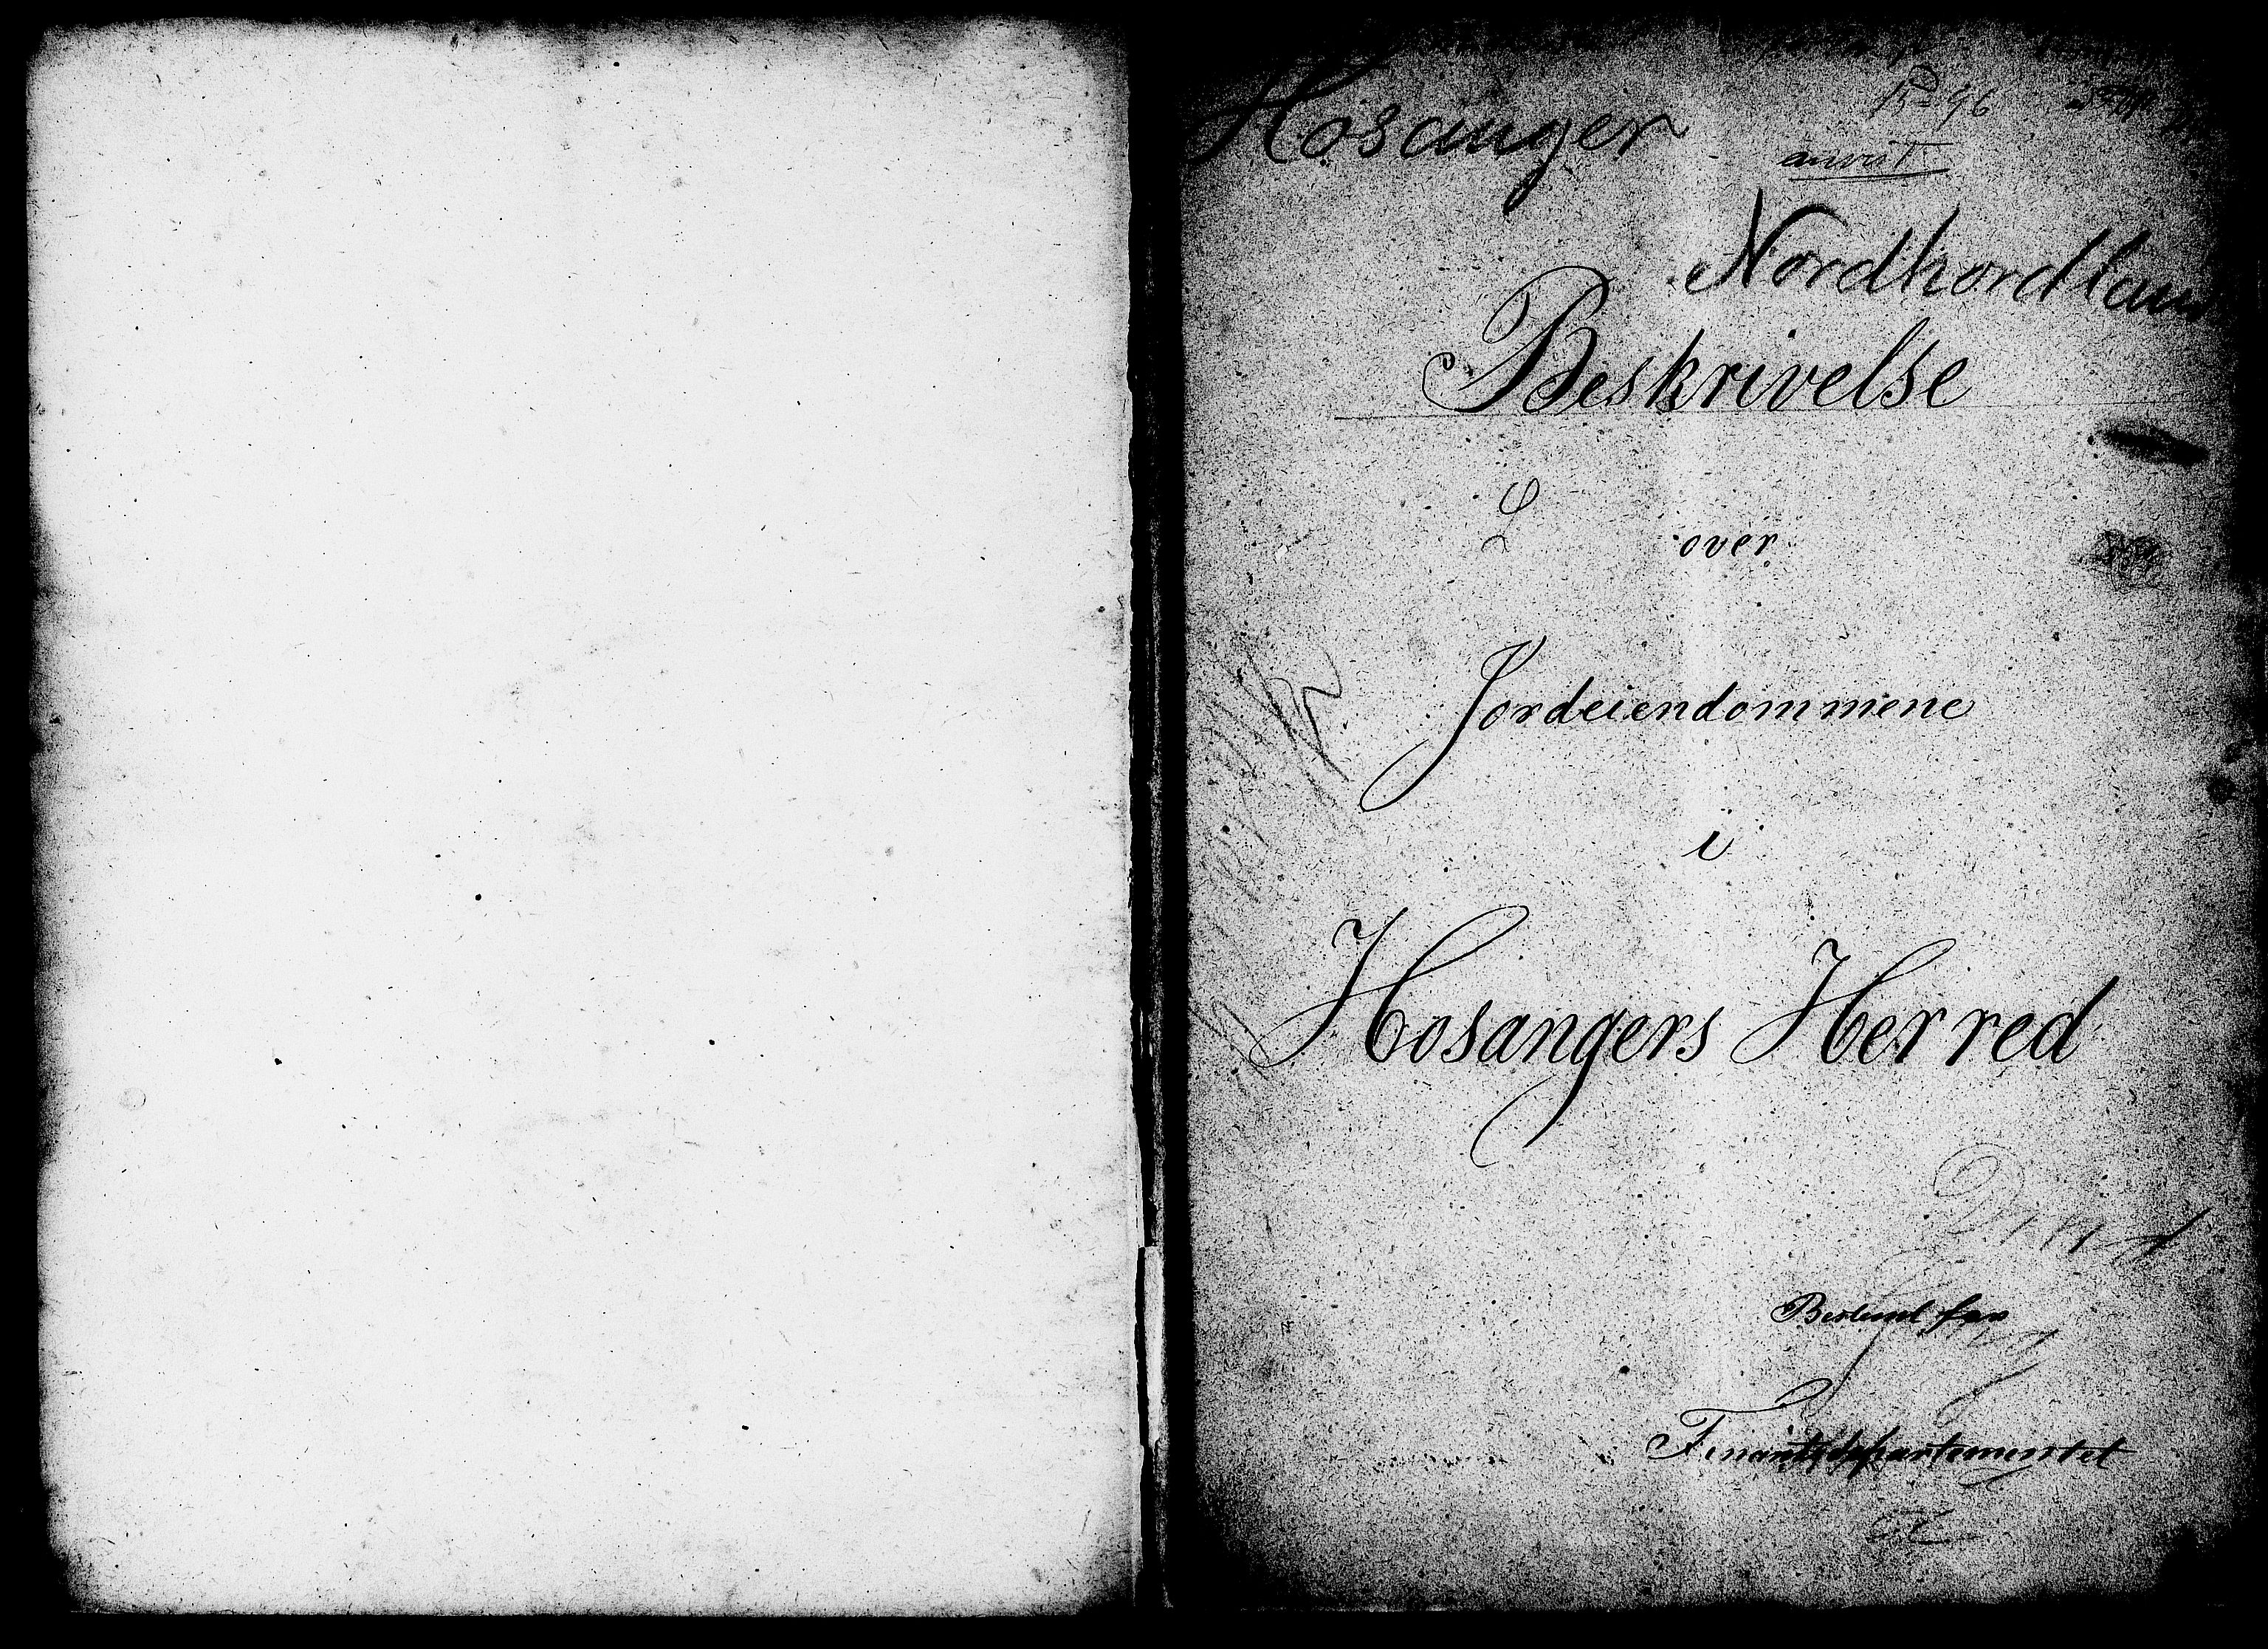 Hosanger
anvist
Nordhordland
Beskrivelse
over
Jordeiendommene
i
Hosangers Herred
Bestemt for
Finantsdepartementet